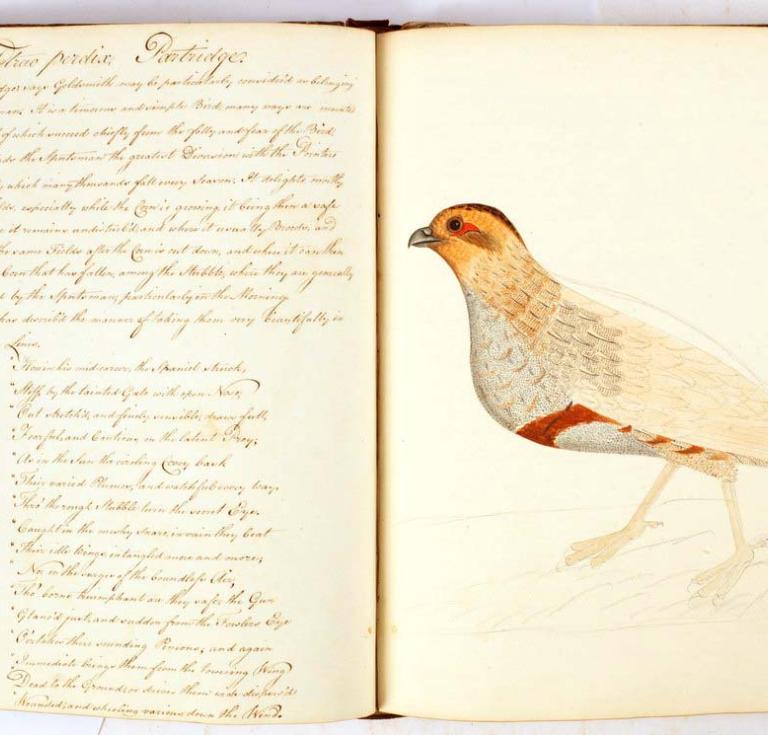 Tetrao perdix; Partridge.
says Goldsmith may be particularly consider'd as belonging
It is a timorous and simple Bird, many ways are
of which succeed chiefly from the folly and fear of the Bird
the Sportsman the greatest Diversion with the Pointers
which many thousands fall every Season; It delights mostly
especially while the Corn is growing, it being then a safe
it remains undisturb'd, and where it usually Broods; and
the same Fields after the Corn is cut down, and where it can then
Corn that has fallen, among the Stubble, where they are generally
by the Sportsman, particularly in the Morning
has describ'd the manner of taking them very beautifully in
Lines.
"How in his mid-career, the Spaniel struck,
"Stiff, by the tainted Gale with open Nose,
"Out stretch'd, and finely sensible, draws full,
"Fearful, and Cautious, on the latent Prey;
"As in the Sun the circling Covey bask
"Their varied Plumes, and watchful every way,
"Thro' the rough Stubble turn the secret Eye.
"Caught in the meshy snare, in vain they beat
"Their idle Wings, intangled more and more;
"Nor on the surges of the boundless Air,
"Tho' borne triumphant are they safe; the Gun
"Glanc'd just, and sudden from the Fowlers Eye
"O'ertakes their sounding Pinions; and again
"Immediate brings them from the towering Wing
"Dead to the Ground; or drives them wide dispers'd
"Wounded; and wheeling various down the Wind.